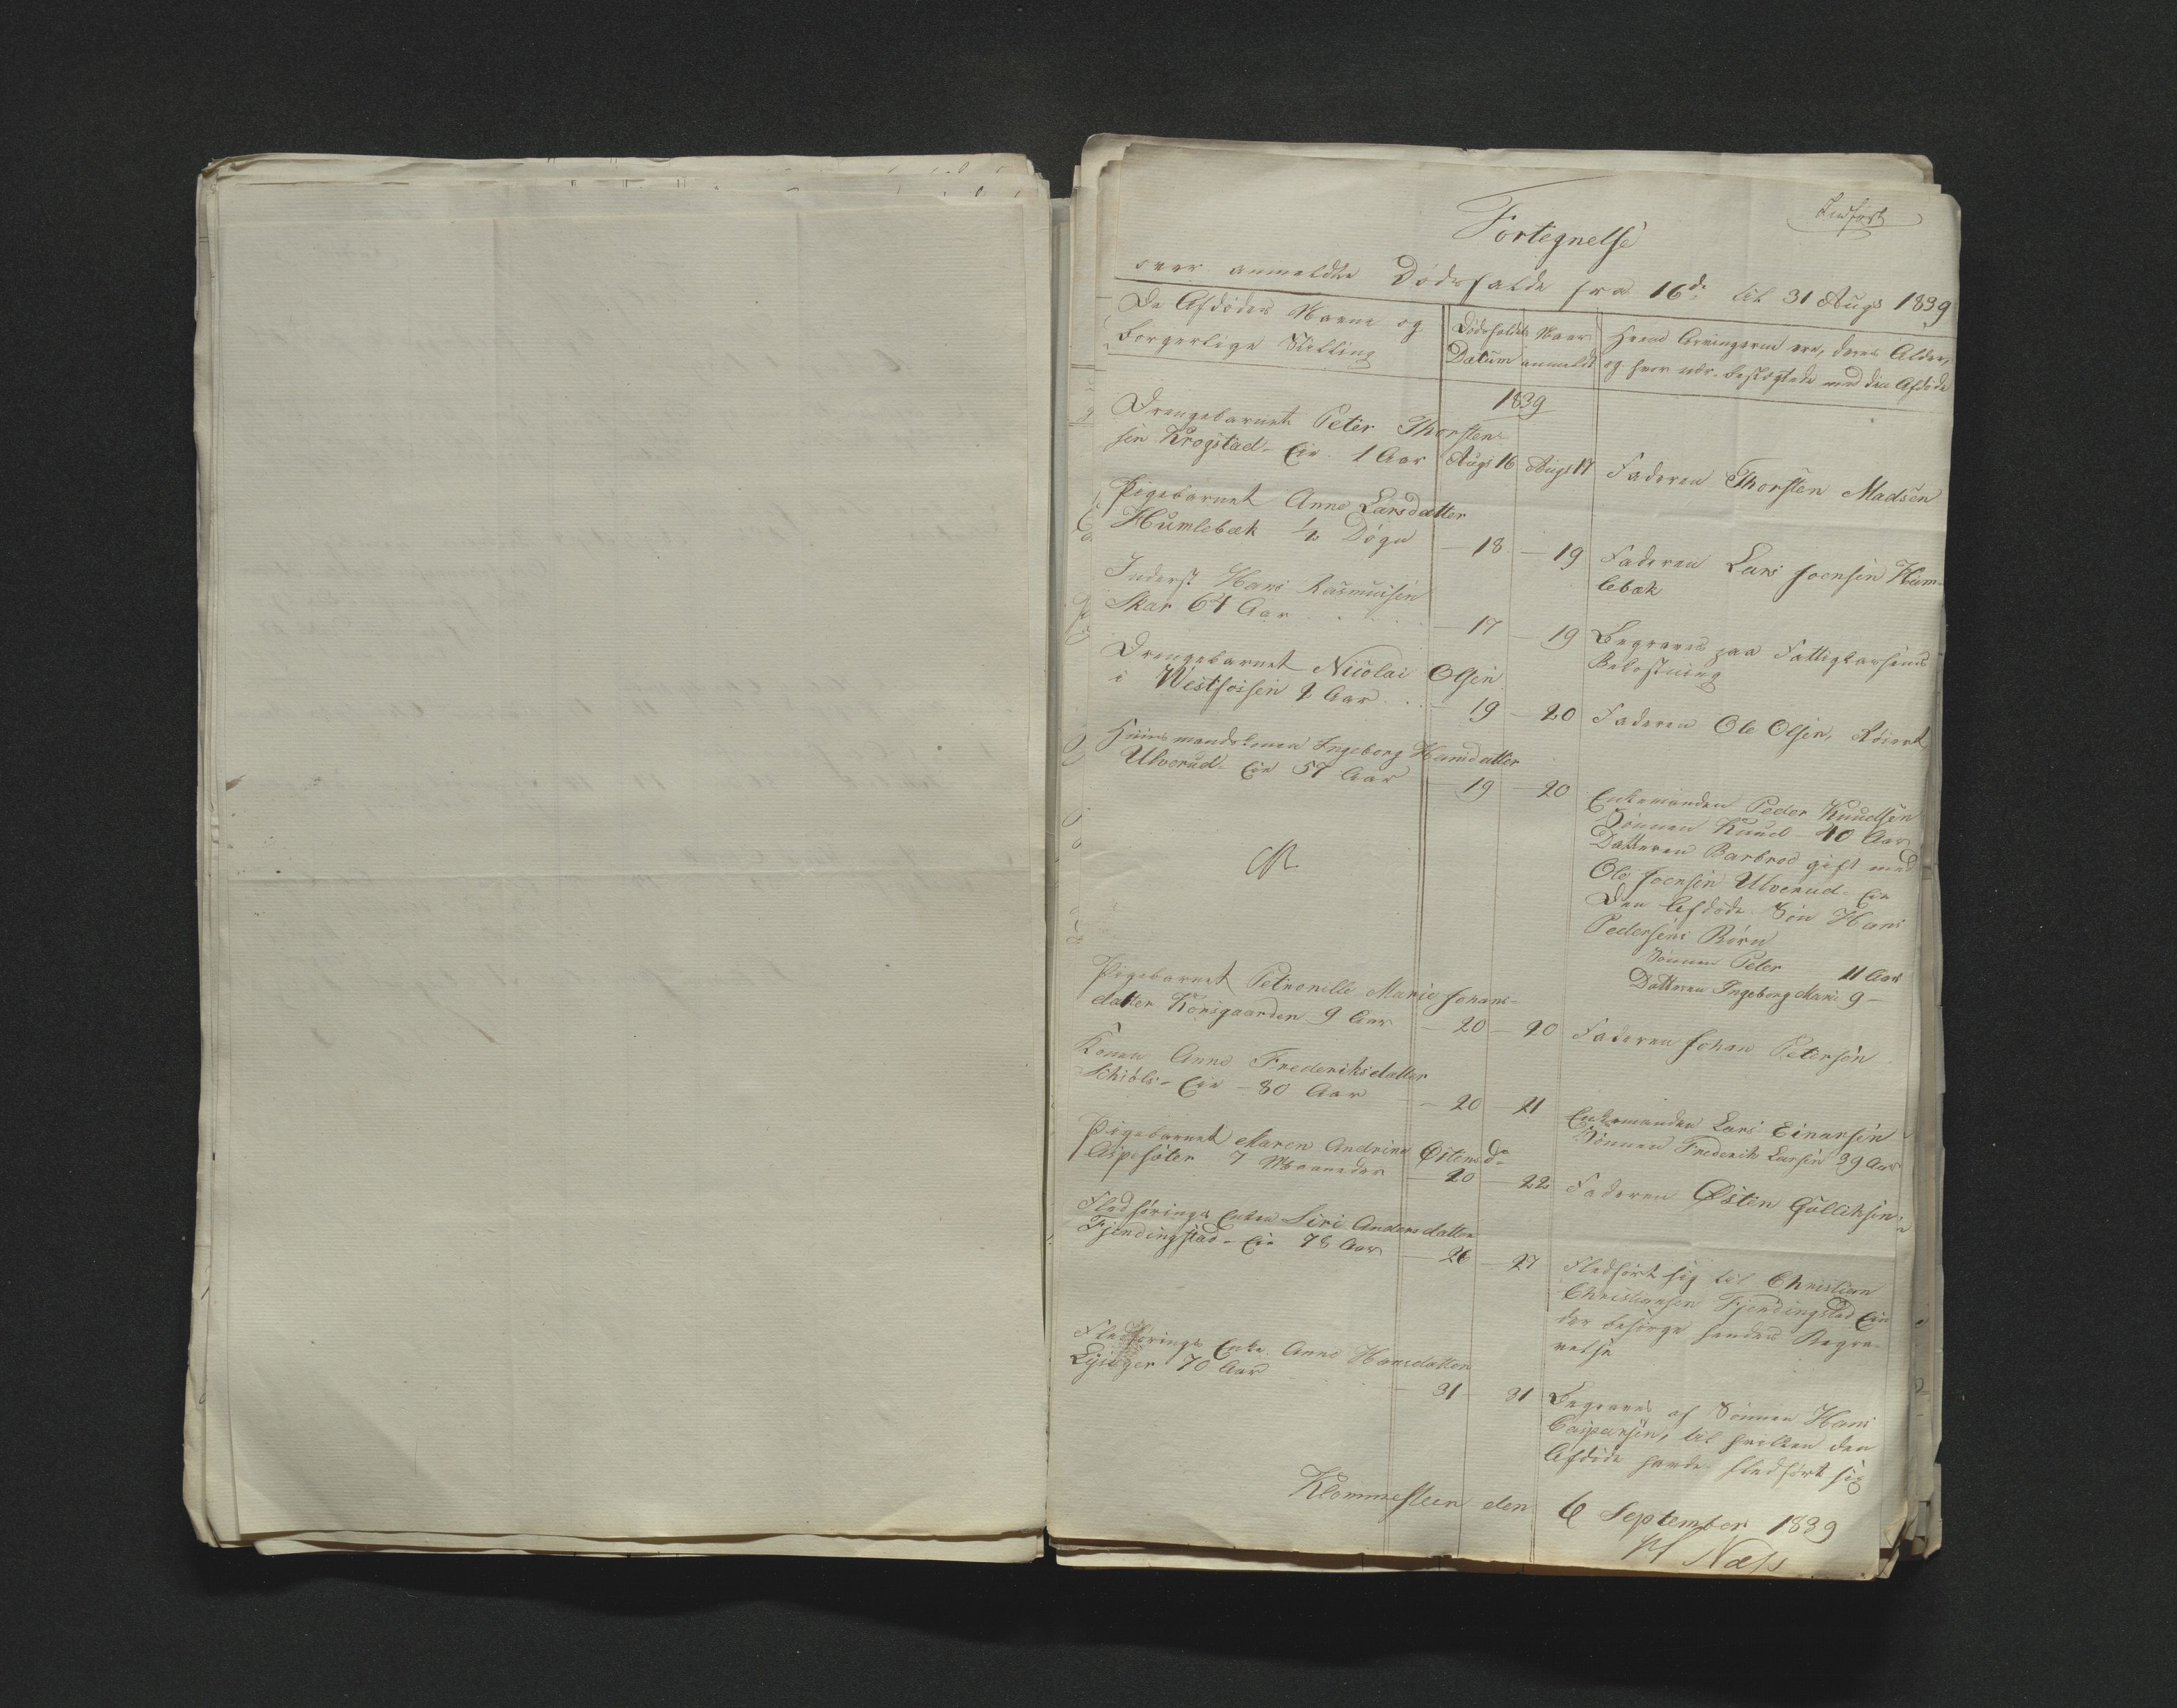 Indført
Fortegnelse
over anmeldte Dødsfalde fra 16de til 31 Augs 1839
De Afdødes Navne og
borgerlige Stilling
Dødsfaldets
Datum
Naar
anmeldt
Hvem Arvingerne ere, deres Alder,
og hvor nær beslægtede med den Afdøde
1839
Drengebarnet Peter Thorsten-
sen Krogstad-Eie 1 Aar Augs 16 Augs 17 Faderen Thorsten Madsen
Pigebarnet Anne Larsdatter
Humlebæk ½ Døgn — 18 — 19 Faderen Lars Joensen Hum-
lebæk
Inderst Hans Rasmusen
Skar 64 Aar — 17 — 19 Begraves paa Fattigkassens
Bekostning
Drengebarnet Nicolai Olsen
i Vestfossen 2 Aar — 19 — 20 Faderen Ole Olsen
Huusmandskonen Ingeborg Hansdatter
Ulverud-Eie 57 Aar — 19 — 20 Enkemanden Peder Knudsen
Sønnen Knud 40 Aar
Datteren Barbroe gift med
Ole Joensen Ulverud-Eie
Den Afdøde Søn Hans
Pedersens Børn
Sønnen Peter 11 Aar
Datteren Ingeborg Marie 9 —
Pigebarnet Petronelle Marie Johans-
datter Korsgaarden 9 Aar — 20 — 20 Faderen Johan Petersen
Konen Anne Frederiksdatter
Schiøls-Eie 80 Aar — 20 — 21 Enkemanden Lars Einarsen
Sønnen Frederik Larsen 39 Aar
Pigebarnet Maren Andrine Østensd.
Aspesæter 7 Maaneder — 20 — 22 Faderen Østen Gulliksen
Fledførings Enke Siri Andersdatter
Fjendingstad-Eie 78 Aar — 26 — 27 Fledført sig til Christian
Christiansen Fjendingstad Eie
der besørge hendes Begra-
velse
Fledførings Enke Anne Hansdatter
70 Aar — 31 — 31 Begraves af Sønnen Hans
Caspersen, til hvilken den
Afdøde havde fledført sig
Klommesteen den 6 September 1839
Næss